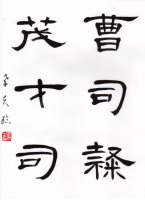 曹司隸
茂才司